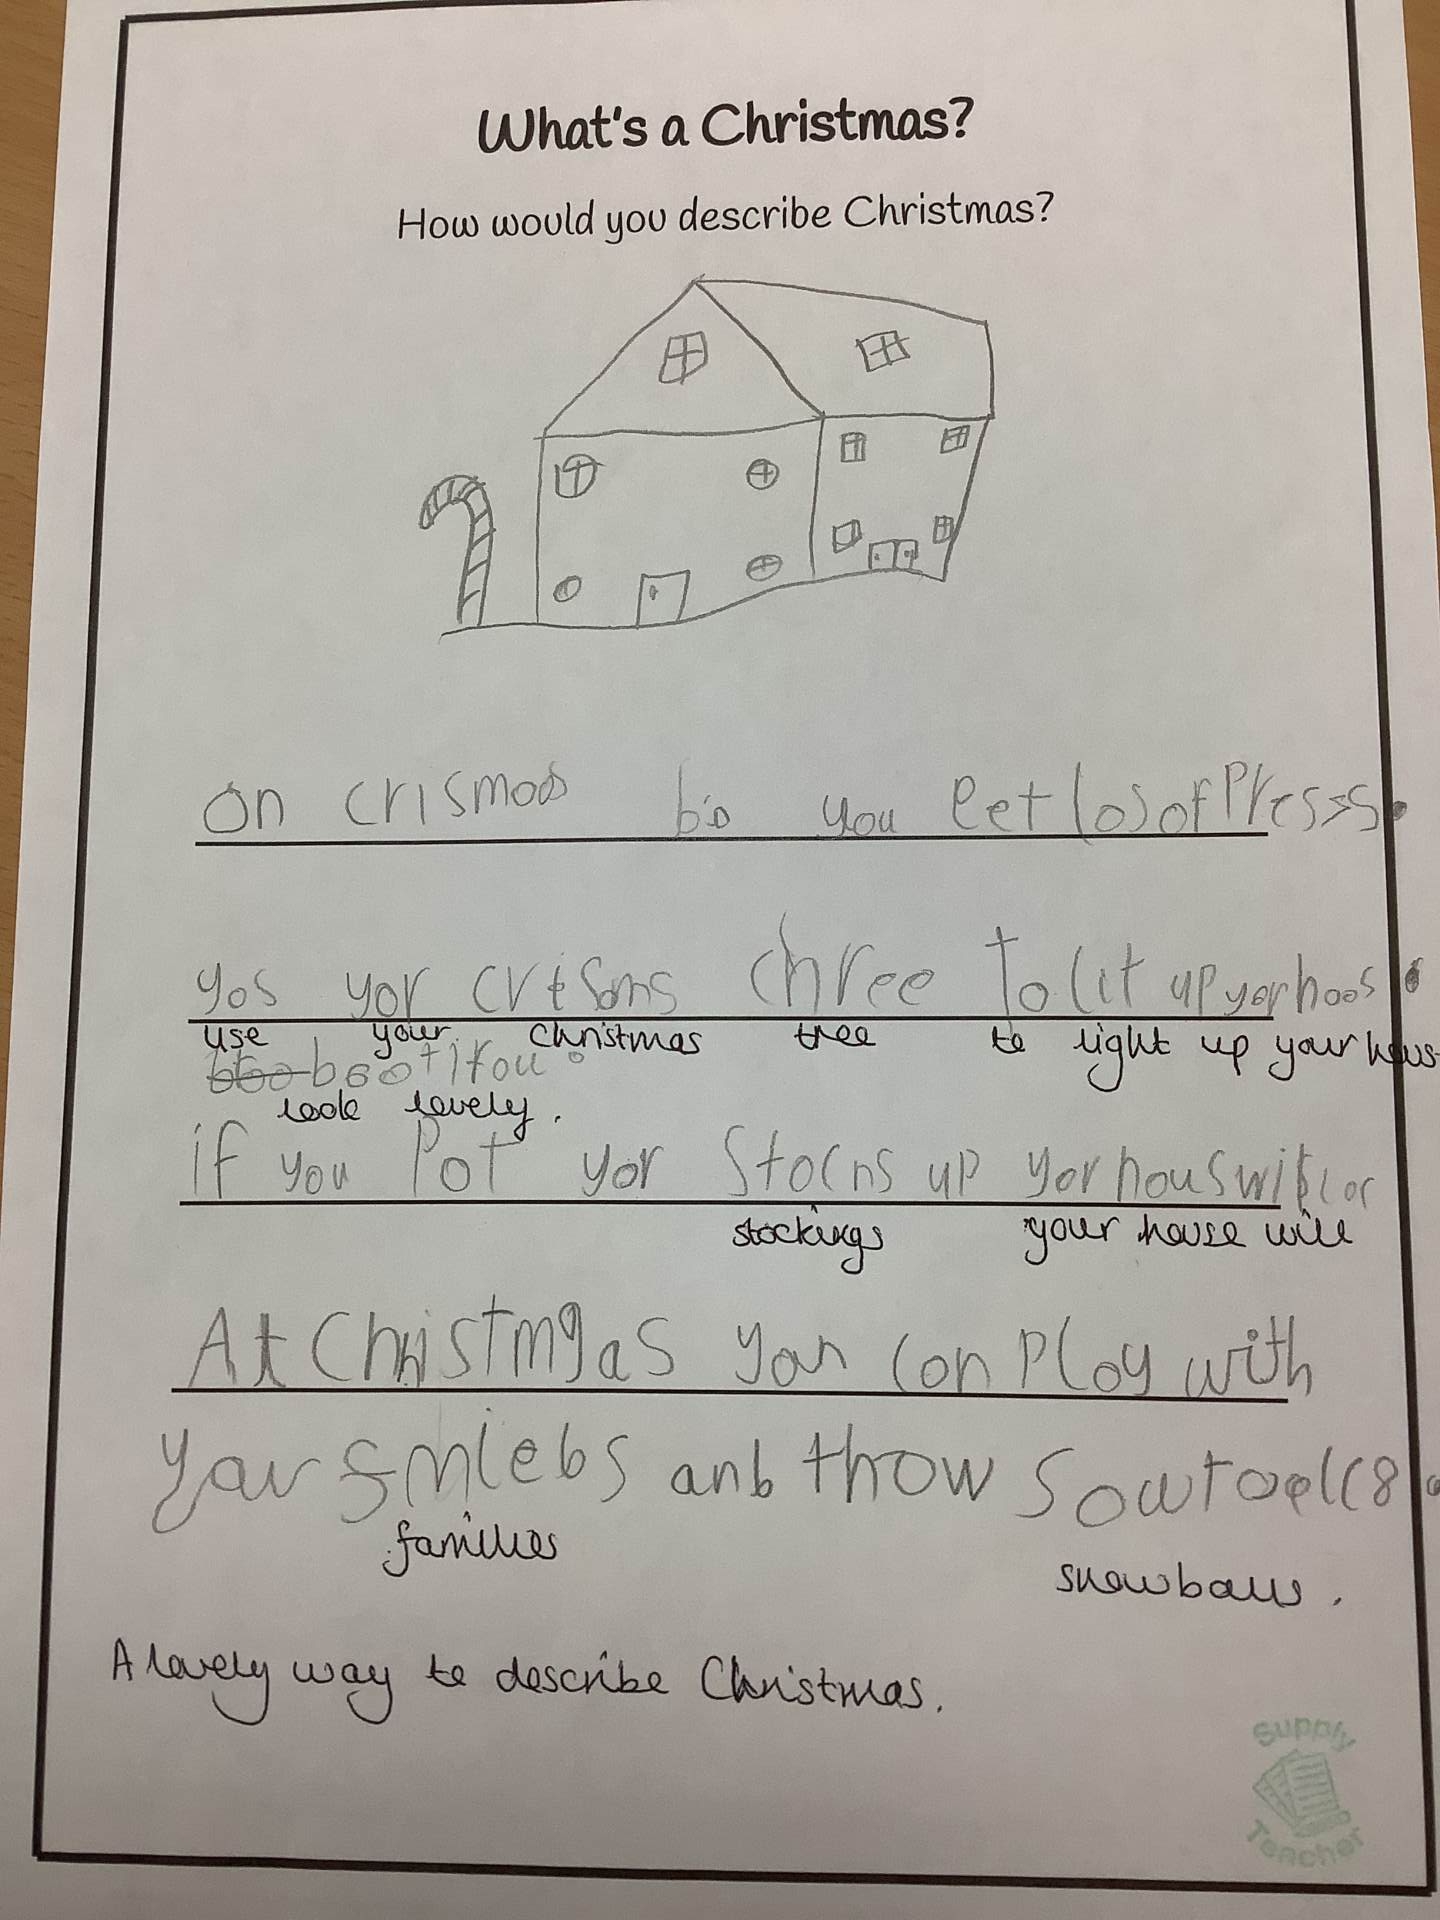 What's a Christmas?
How would you describe Christmas?
on crismas you eet los of
yos yor crisms chree To lit up yor hoos.
use your Christmas tree to light up your hous
bootifou.
look lovely.
if you Pot yor Stocns up yor hous wil
stockings your house will
At Christmas you con Ploy with
your and throw
families
snowballs.
A lovely way to describe Christmas.
Supply
Teacher